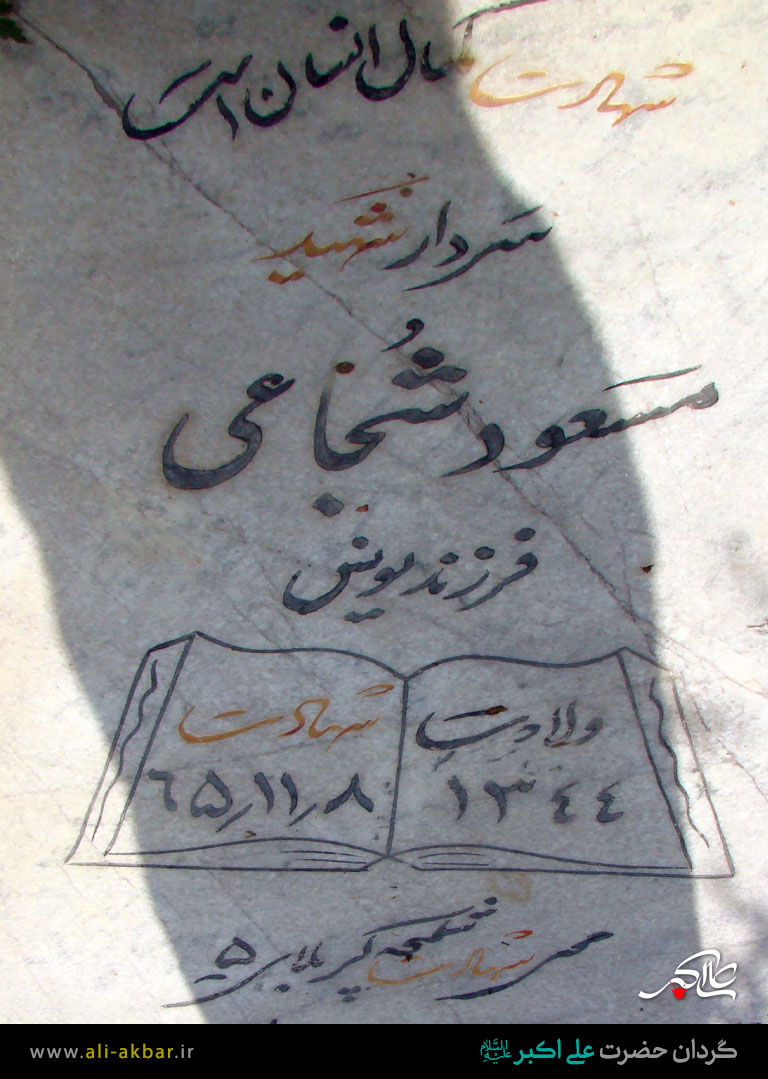 شهادت کمال انسان است
سردار شهید
مسعود شجاعی
فرزند یونس
ولادت
۱۳٤٤
شهادت
٦۵٫۱۱٫۸
محل شهادت شلمچه کربلای ۵
علی اکبر
گردان حضرت علی اکبر علیه السلام
www.ali-akbar.ir